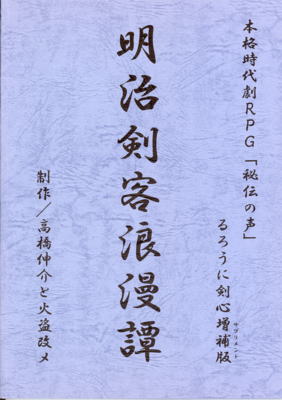 本格時代劇RPG「秘伝の声」
るろうに剣心増補版
サプリメント
明治剣客浪漫譚
制作／高橋仲介と火盗改メ